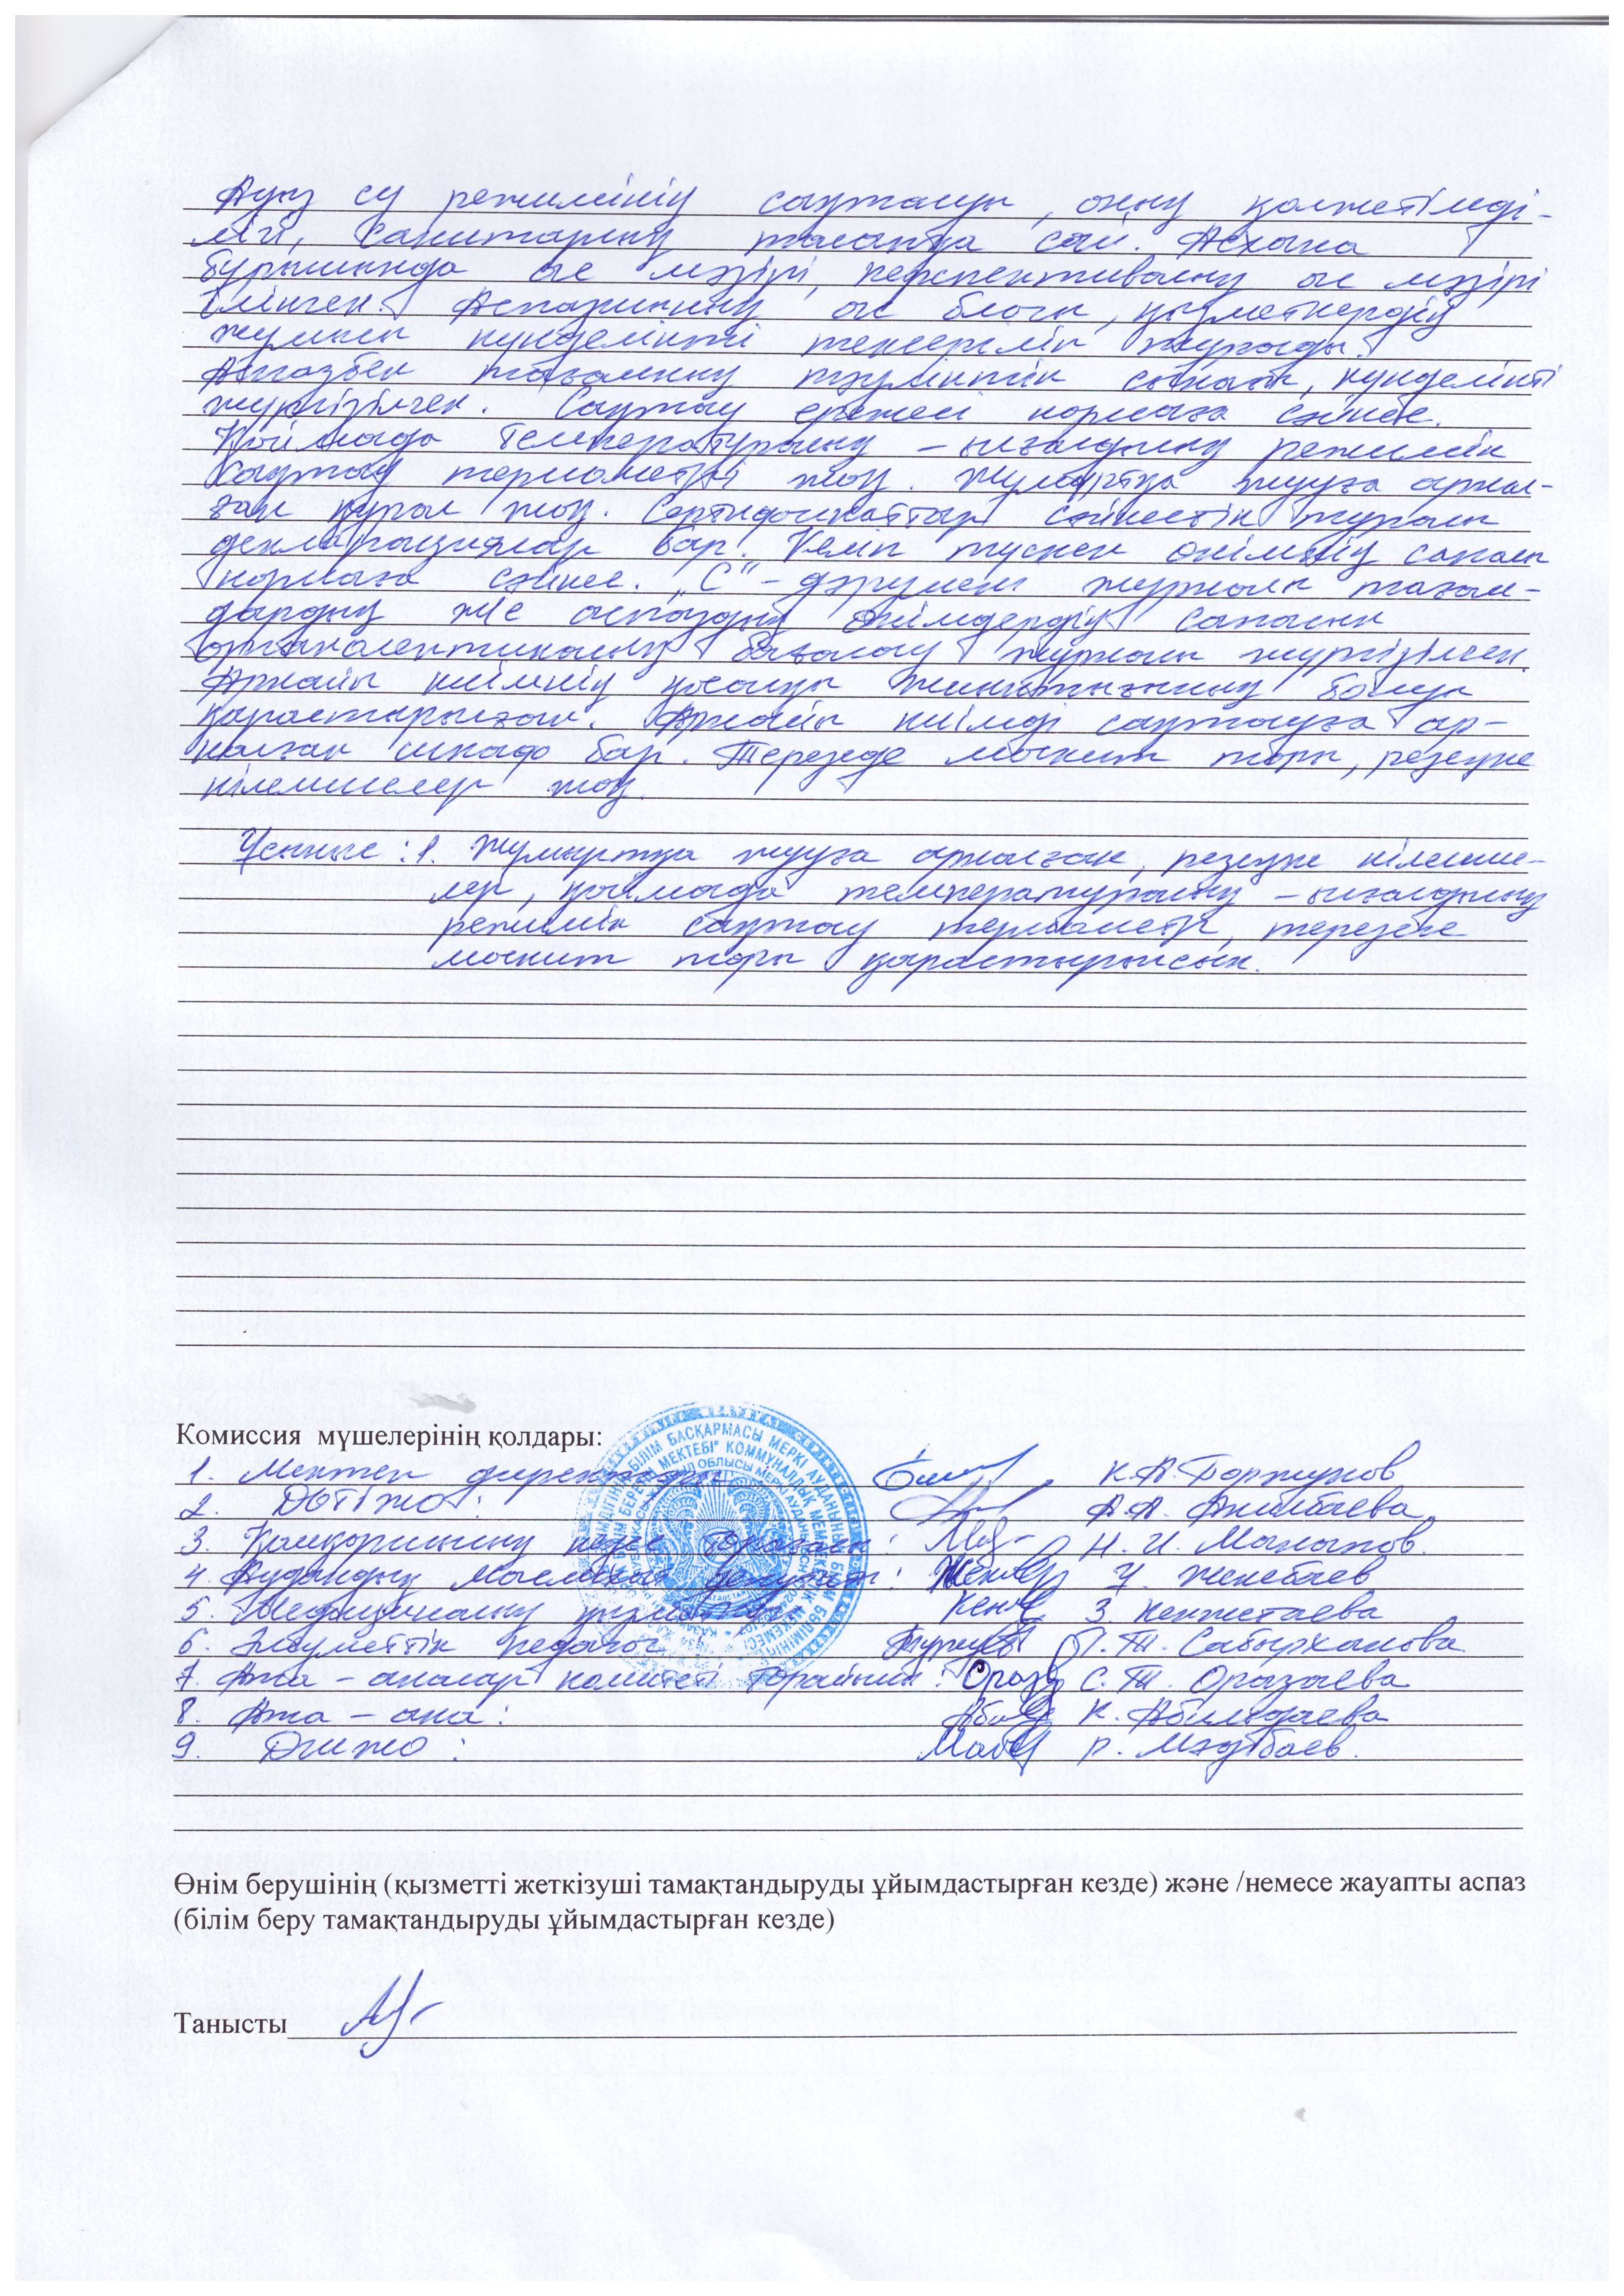 Ауыз су режимінің сақталуы, оның қолжетімді-
лігі, санитарлық талапқа сай. Асхана
бұрышында ас мәзірі, перспективалық ас мәзірі
ілінген. Аспазшының ас блогы, қызметкердің
жұмысы күнделікті тексеріліп тұрады.
тағамның тәуліктік сынағы, күнделікті
жүргізілген. Сақтау ережесі нормаға сәйкес.
Қоймада температуралық – ылғалдылық режимін
сақтау термометрі жоқ. Жұмыртқа жууға арнал-
ған құрал жоқ. Сертификаттар сәйкестік туралы
декларациялар бар. Келіп түскен өнімнің сапасы
нормаға сәйкес. „С"-дәрумені журналы тағам-
дардың ж/е аспаздық өнімдердің сапасын
органолептикалық бағалау журналы жүргізілген.
Арнайы киімнің қосалқы жиынтығының болуы
қарастырылған. Арнайы киімді сақтауға ар-
налған шкаф бар. Терезеде москит торы, резеңке
кілемшелер жоқ.
Ұсыныс: 1. Жұмыртқа жууға арналған, резеңке кілемше-
лер, қоймада температуралық – ылғалдылық
режимін сақтау термометрі, терезеге
москит торы қарастырылсын.
Комиссия мүшелерінің қолдары:
1. Мектеп директоры К.А.
2. ДОТІЖО: А.А. Ажибаева
3. Қамқоршылық кеңес төрағасы: Н. И. Манапов
4. Аудандық мәслихат депутаты: У. Женебаев
5. Медициналық қызметкер З. Кенжетаева
6. Әлеуметтік педагог Г. Т. Сабырханова
7. Ата – аналар комитеті төрайымы: С. Т. Оразаева
8. Ата – ана: К. Абилдаева
9. ДТІЖО: Р. Мәдібаев.
Өнім берушінің (қызметті жеткізуші тамақтандыруды ұйымдастырған кезде) және /немесе жауапты аспаз
(білім беру тамақтандыруды ұйымдастырған кезде)
Танысты